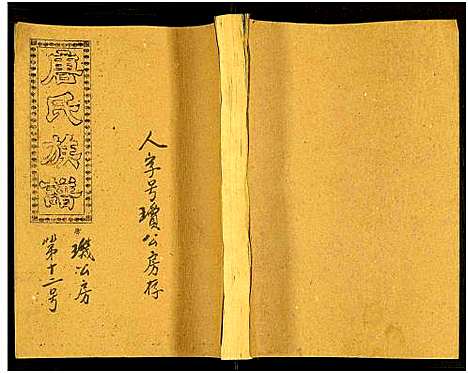 人字号瓊公房存
唐氏族譜
璣公房
第十二号